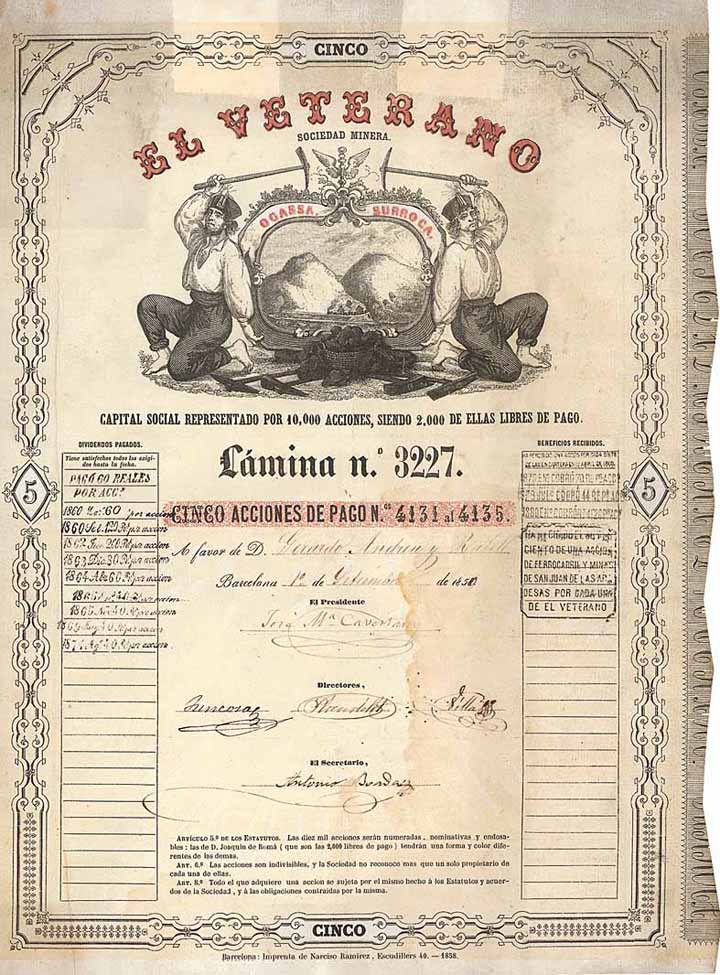 CINCO
EL VETERANO
SOCIEDAD MINERA.
OGASSA SURROCA.
CAPITAL SOCIAL REPRESENTADO POR 10,000 ACCIONES, SIENDO 2,000 DE ELLAS LIBRES DE PAGO.
DIVIDENDOS PAGADOS.
Tiene satisfechos todos los exigidos hasta la fecha.
PAGÓ 60 REALES
POR ACC.n
1860 60 por accion
1860 Set. 120 R. por accion
1862 200 R. por accion
1863 Dic 30 R. por accion
1864 Ab. 60 R. por accion
1865 40 R. por accion
1866 Nov 40 R. por accion
1869 40 R. por accion
1871 40 R. por accion
Lámina n.º 3227.
CINCO ACCIONES DE PAGO N.os 4131 al 4135.
A favor de D. Gerardo Andreu y
Barcelona 1º de Setiembre de 1858
El Presidente
José Mª
Directores,
El Secretario,
Antonio
BENEFICIOS RECIBIDOS.
CIENTO DE UNA ACCION
DE FERROCARRIL Y MINAS
DE SAN JUAN DE LAS ABA
DESAS POR CADA UNA
DE EL VETERANO
5
5
ARTÍCULO 5.º DE LOS ESTATUTOS. Las diez mil acciones serán numeradas, nominativas y endosa-
bles : las de D. Joaquin de Romá ( que son las 2,000 libres de pago ) tendrán una forma y color dife-
rentes de las demas.
ART. 6.º Las acciones son indivisibles, y la Sociedad no reconoce mas que un solo propietario de
cada una de ellas.
ART. 8.º Todo el que adquiere una accion se sujeta por el mismo hecho á los Estatutos y acuer-
dos de la Sociedad, y á las obligaciones contraidas por la misma.
CINCO
Barcelona: Imprenta de Narciso Ramirez, Escudillers 40. — 1858.